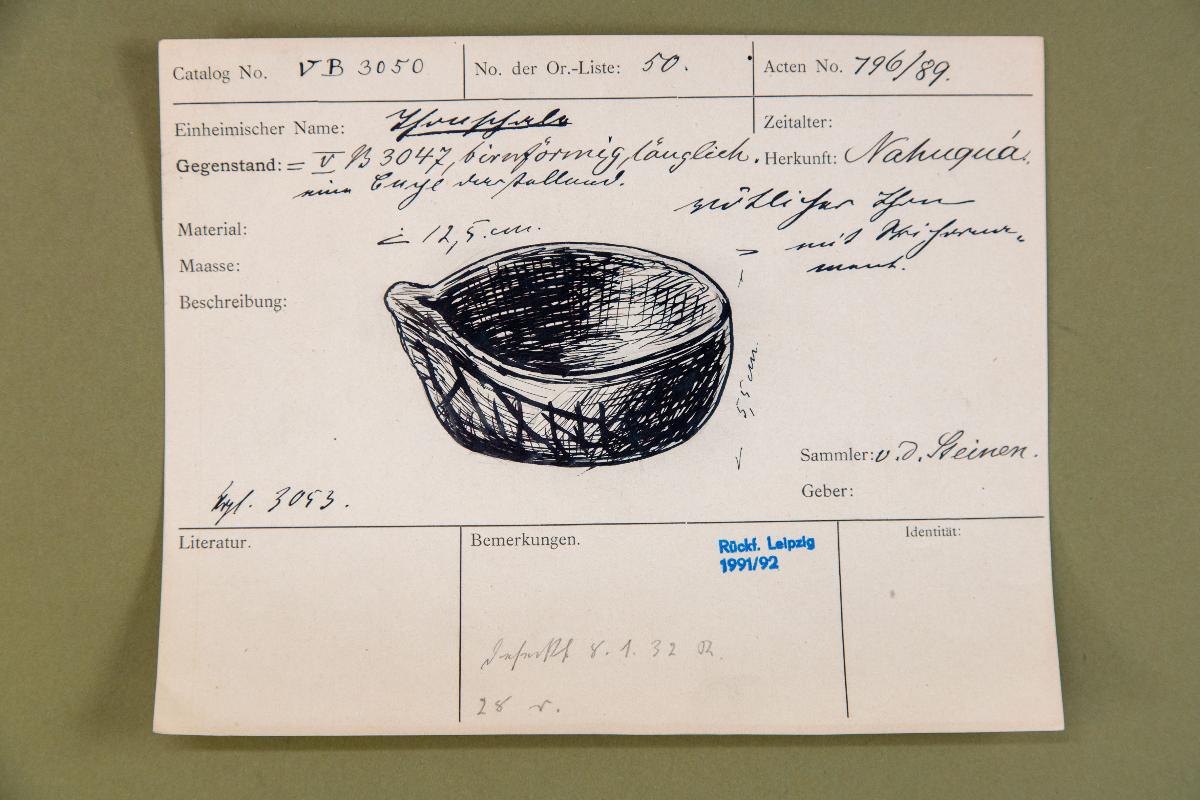 Catalog No. VB 3050
No. der Or.-Liste: 50.
Acten No. 796/89.
Einheimischer Name: Thonschale
Zeitalter:
Gegenstand: = V B 3047, birnförmig, länglich.
Herkunft: Nahuquá.
eine darstellend.
röthlicher Thon
mit
ment.
Material:
12,5 cm.
Maasse:
Beschreibung:
5,5 cm.
Sammler: v. d. Steinen.
Geber:
Vrgl. 3053.
Literatur.
Bemerkungen.
Rückf. Leipzig
1991/92
Identität:
defekt 8. 1. 32
28 v.